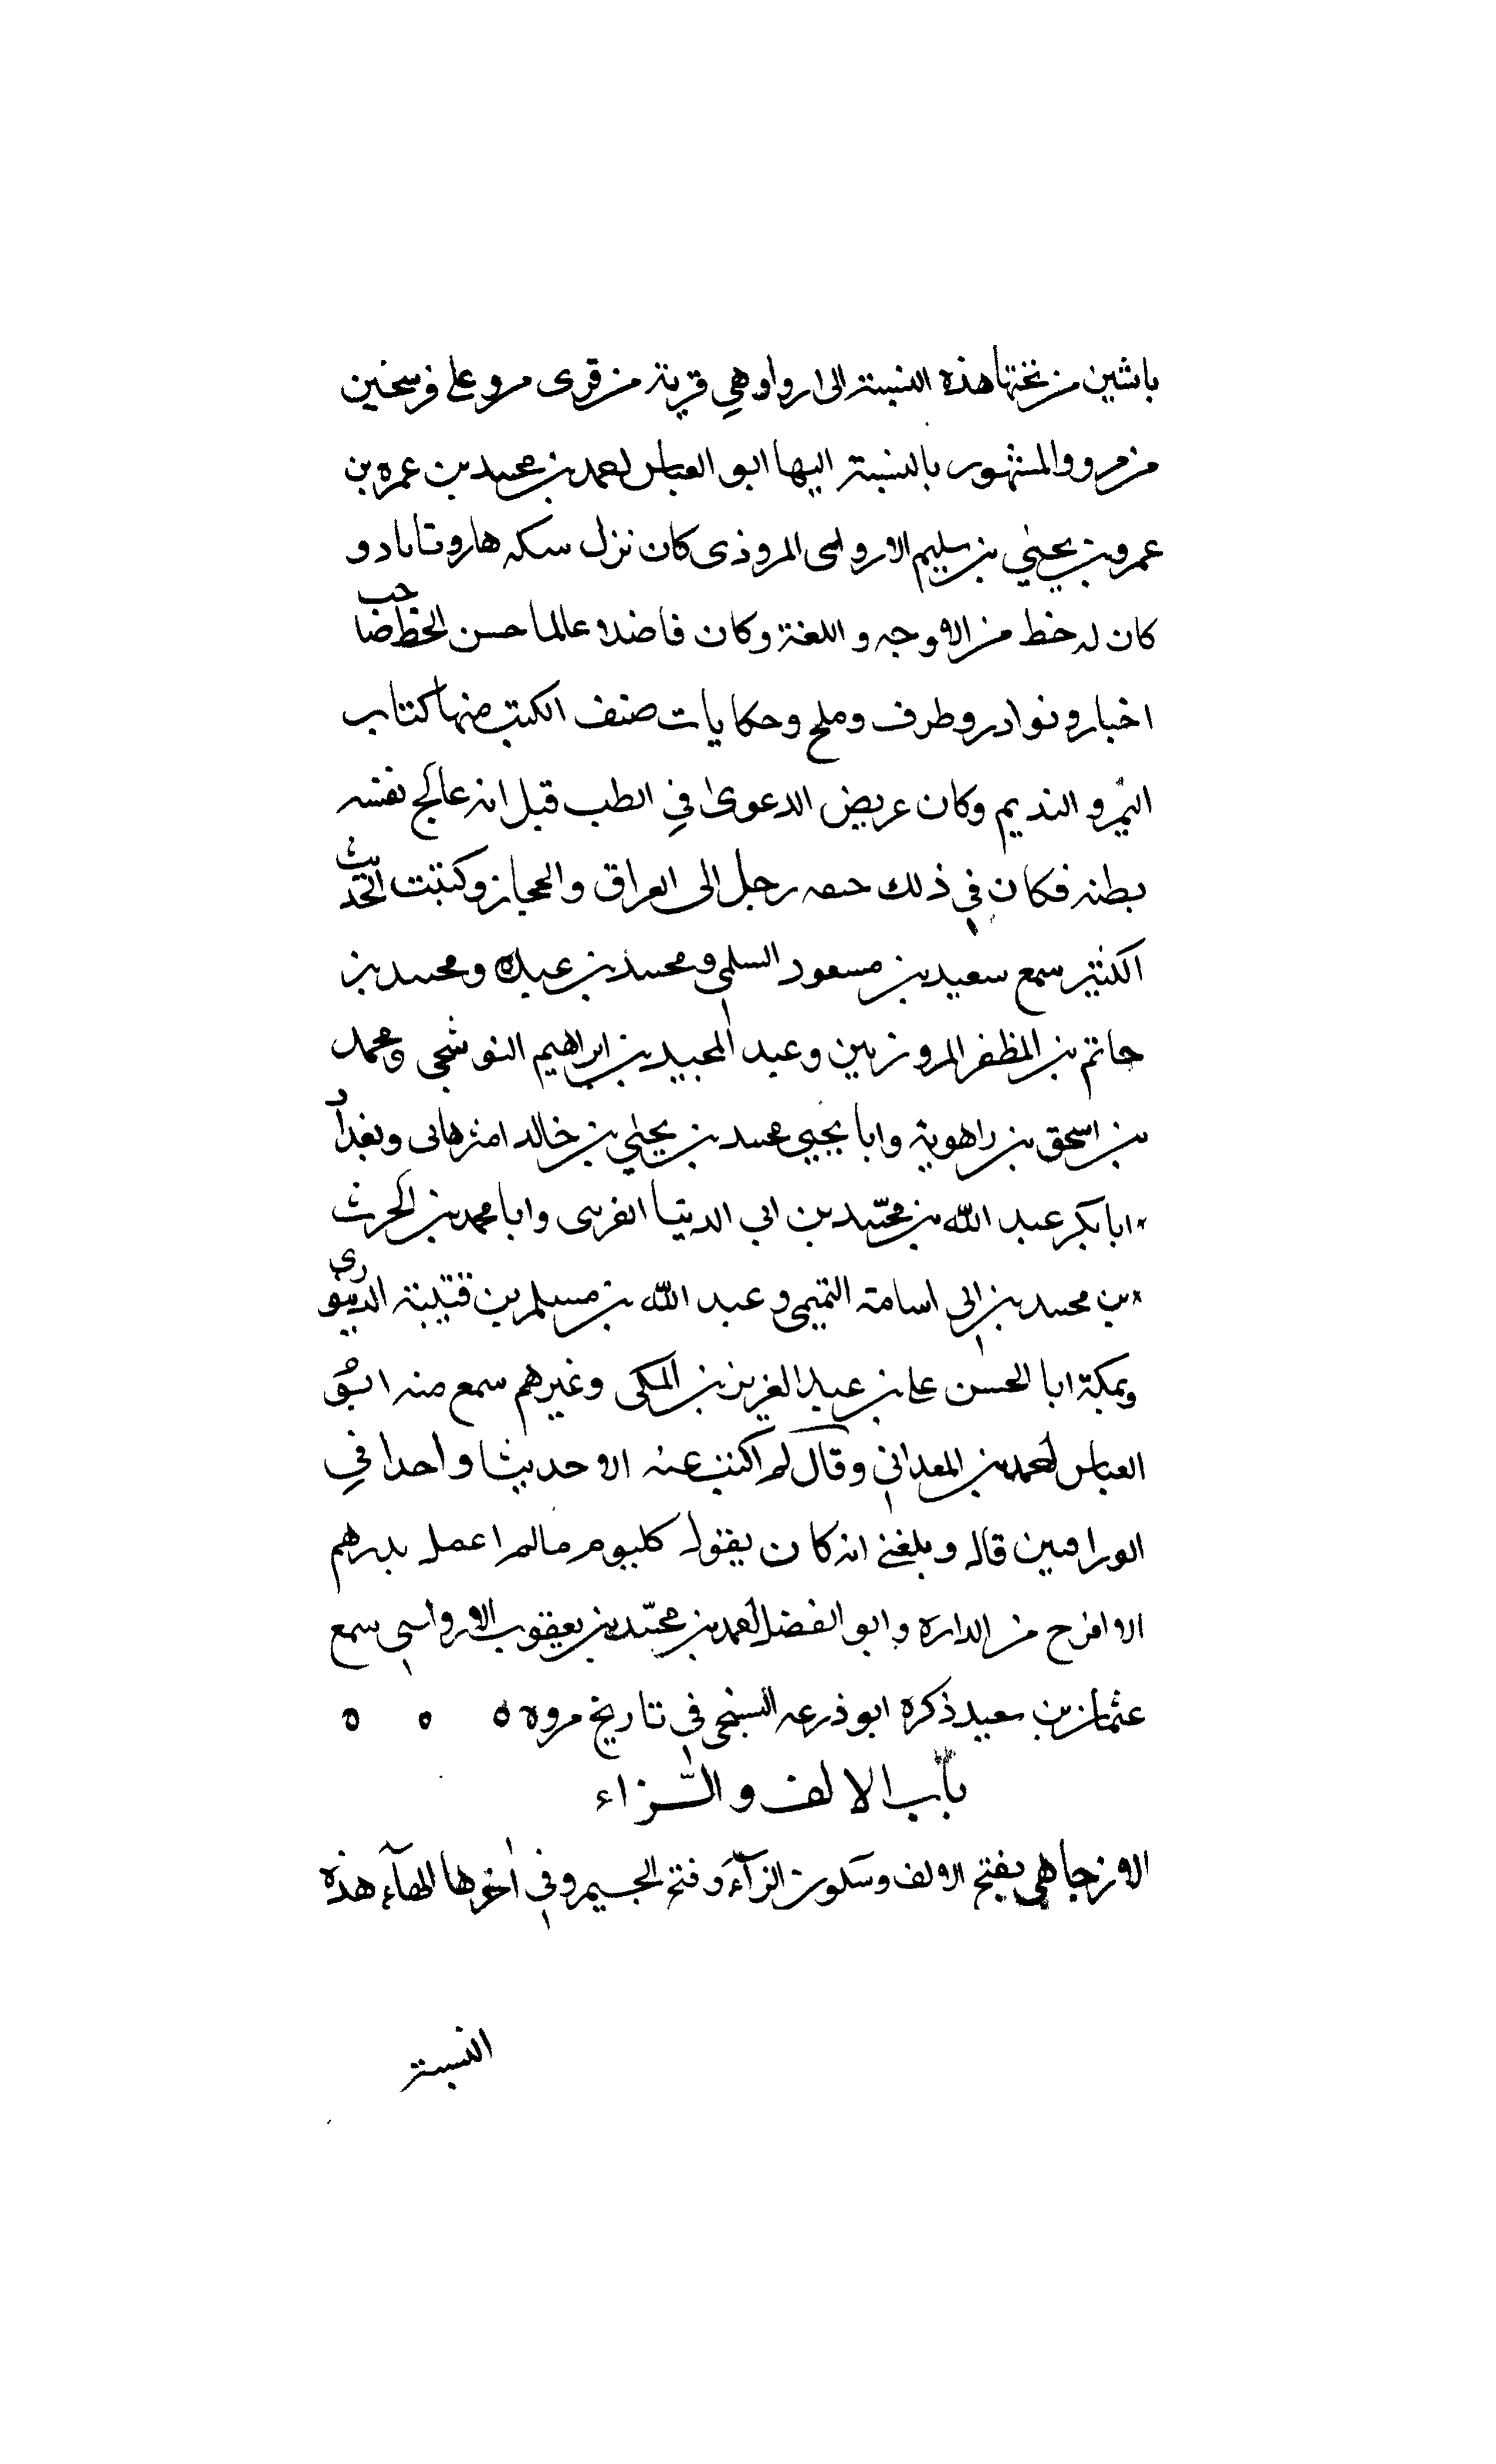 باثنين من تحتها هذه النسبة الى ارواو هي قرية من قرى مرو على فرسخين
من مرو والمشهور بالنسبة اليها ابو العباس احمد بن محمد بن عمره بن
عمرو بن يحيى بن سليم الاروائى المروذى كان نزل سكه هاروناباد و
كان له خط من الاوجه و اللغة وكان فاضلا عالما حسن الخط صاحب
اخبار و نوادر و طرف وملح وحكايات صنف الكتب منها كتاب
و النديم وكان عريض الدعوى في الطب قيل انه عالج نفسه
بطنه فكان في ذلك رجل الى العراق والحجاز وكتبت الحديث
الكثير سمع سعيد بن مسعود السلمي ومحمد بن عبده ومحمد بن
حاتم بن المظفر المروزيين وعبد المجيد بن ابراهيم النوشجى ومحمد
بن اسحق بن راهوية وابا يحيى محمد بن يحيى بن خالد وبغداد
ابا بكر عبد الله بن محمد بن ابى الدنيا القرسى وابا محمد بن الحرث
بن محمد بن ابي اسامة التميمى وعبد الله بن مسلم بن قتيبة الدينورى
وبمكة ابا الحسن على بن عبد العزيز بن المكى وغيرهم سمع منه
العباس احمد بن المعداني وقال لم اكتب عنه الا حديثا واحدا في
قال و بلغنى انه كان يقول كل يوم مالم اعمل بدرهم
الا افرح من الداره وابو الفضل احمد بن محمد بن يعقوب الاروائي سمع
عثمان بن سعيد ذكره ابو ذرعه السنجى في تاريخ مروه ه ه ه
باب الالف والزاء
الازجاهى بفتح الالف وسكون الزآء وفتح الجيم وفي اخرها الهآء هذه
النسبة